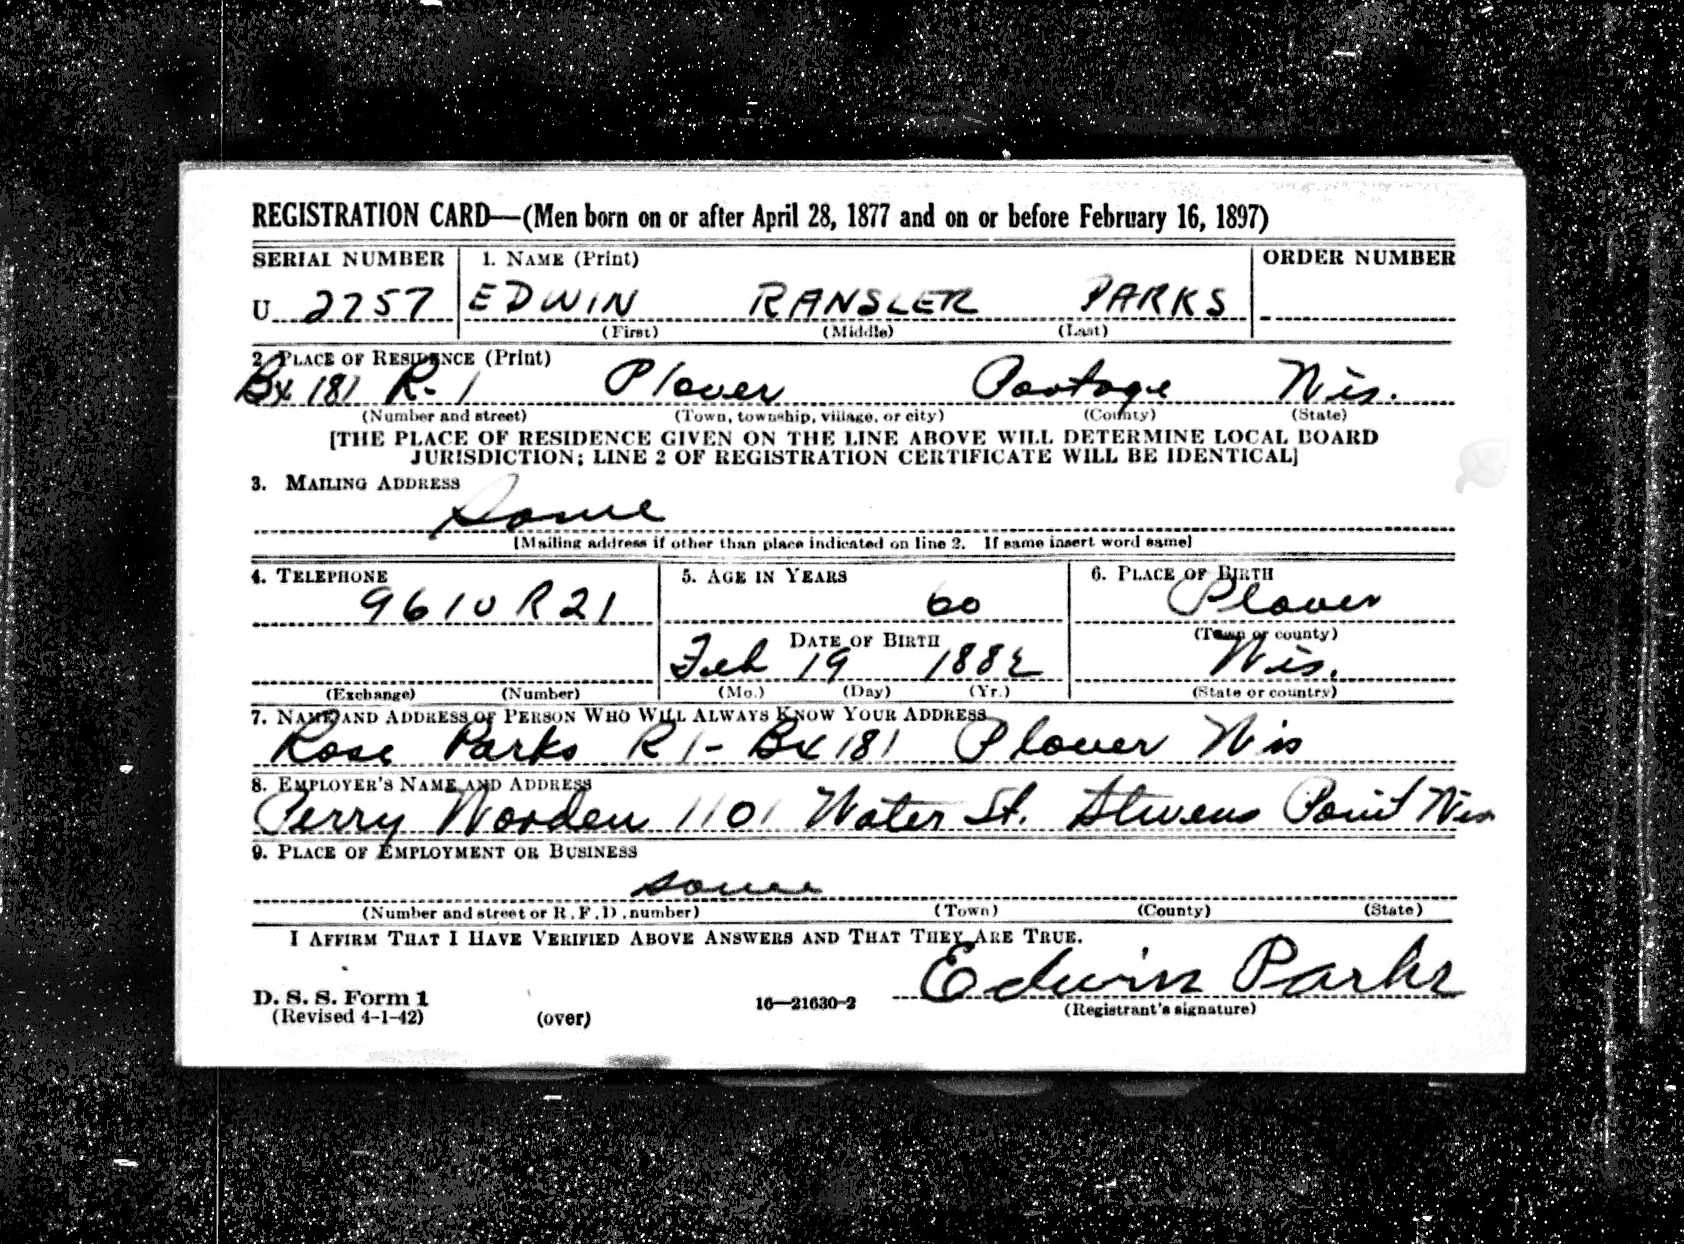 REGISTRATION CARD—(Men born on or after April 28, 1877 and on or before February 16, 1897)
SERIAL NUMBER 1. NAME (Print) ORDER NUMBER
U 2257 EDWIN RANSLER PARKS
(First) (Middle) (Last)
2. PLACE OF RESIDENCE (Print)
Bx 181 R-1 Plover Portage Wis.
(Number and street) (Town, township, village, or city) (County) (State)
[THE PLACE OF RESIDENCE GIVEN ON THE LINE ABOVE WILL DETERMINE LOCAL BOARD
JURISDICTION; LINE 2 OF REGISTRATION CERTIFICATE WILL BE IDENTICAL]
3. MAILING ADDRESS
Same
[Mailing address if other than place indicated on line 2. If same insert word same]
4. TELEPHONE 5. AGE IN YEARS 6. PLACE OF BIRTH
9610 R 21 60 Plover
DATE OF BIRTH (Town or county)
Feb 19 1882 Wis.
(Exchange) (Number) (Mo.) (Day) (Yr.) (State or country)
7. NAME AND ADDRESS OF PERSON WHO WILL ALWAYS KNOW YOUR ADDRESS
Rose Parks R 1- Bx 181 Plover Wis
8. EMPLOYER'S NAME AND ADDRESS
Perry Worden 1101 Water St. Stevens Point Wis
9. PLACE OF EMPLOYMENT OR BUSINESS
same
(Number and street or R. F. D. number) (Town) (County) (State)
I AFFIRM THAT I HAVE VERIFIED ABOVE ANSWERS AND THAT THEY ARE TRUE.
Edwin Parks
D. S. S. Form 1 16—21630-2
(Revised 4-1-42) (over) (Registrant's signature)